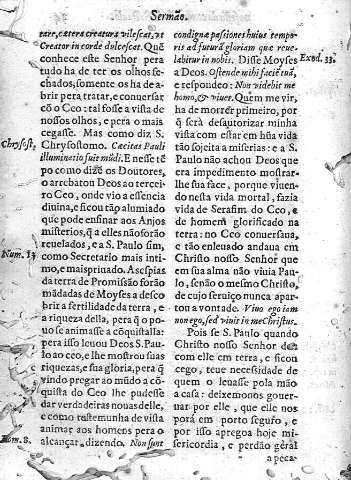 Sermão.
tare, cætera creatura vilescat, et
Creator in corde dulcescat. Quẽ
conhece este Senhor pera
tudo ha de ter os olhos se-
chados, somente os ha de a-
brir pera tratar, e conuersar
cõ o Ceo: tal fosse a vista de
nossos olhos, e pera o mais
cegasse. Mas como diz S.
Chrysostomo. Caecitas Pauli
illuminatio fuit mũdi. E nesse tẽ
po como dizẽ os Doutores,
o arrebatou Deos ao tercei-
ro Ceo, onde vio a essencia
diuina, e ficou tão alumiado
que pode ensinar aos Anjos
misterios, q̃ a elles não forão
reuelados, e a S. Paulo sim,
como Secretario mais inti-
mo, e mais priuado. As espias
da terra de Promissão forão
mãdadas de Moyses a desco
brir a fertilidade da terra, e
a riqueza della, pera q̃ o po-
uo se animasse a cõquistalla:
pera isso leuou Deos S. Pau-
lo ao ceo, e lhe mostrou suas
riquezas, e sua gloria, pera q̃
vindo pregar ao mũdo a cõ-
quista do Ceo lhe pudesse
dar verdadeiras nouas delle,
e como testemunha de vista
animar aos homens pera o
alcançar, dizendo. Non sunt
Chrysost,
Num. 13
Rom. 8.
condignæ passiones huius tempo-
ris ad futurã gloriam quæ reue-
labitur in nobis. Disse Moyses
a Deos. Ostende mihi faciẽ tuã,
e respondeo: Non videbit me
homo, & viuet. Quem me vir,
ha de morrer primeiro, por
q̃ será desautorizar minha
vista com estar em hũa vida
tão sojeita a miserias: e a S.
Paulo não achou Deos que
era impedimento mostrar-
lhe sua face, porque viuen-
do nesta vida mortal, fazia
vida de Serafim do Ceo, e
de homem glorificado na
terra: no Ceo conuersaua,
e tão enleuado andaua em
Christo nosso Senhor que
em sua alma não viuia Pau-
lo, senão o mesmo Christo,
de cujo seruiço nunca apar-
tou a vontade. Viuo ego iam
non ego, sed viuit in me Christus.
Pois se S. Paulo quando
Christo nosso Senhor deu
com elle em terra, e ficou
cego, teue necessidade de
quem o leuasse pola mão
a casa: deixemonos gouer-
nar por elle, que elle nos
porá em porto seguro, e
por isso apregoa hoje mi-
sericordia, e perdão géral
a peca-
Exod. 33.